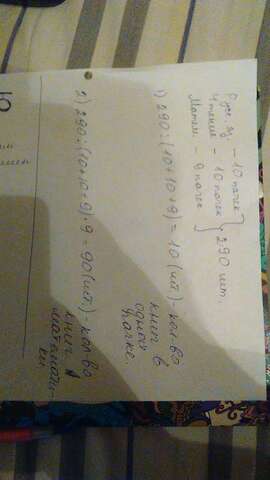 Русс. яз. - 10 пачек
Чтение - 10 пачек } 290 шт.
Матем. - 9 пачек
1) 290:(10+10+9)=10 (шт.) - кол-во
книг в
одной
пачке.
2) 290:(10+10+9)·9=90(шт.) - кол-во
книг
математи-
ки